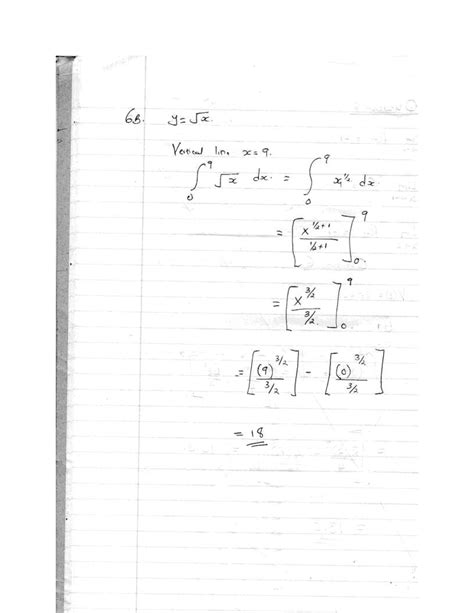 6B. y = √x.
Vertical line x = 9.
∫₀⁹ √x dx. = ∫₀⁹ x^½ dx.
= [x^(½+1) / (½+1)]₀⁹
= [x^(3/2) / (3/2)]₀⁹
= [(9)^(3/2) / (3/2)] - [(0)^(3/2) / (3/2)]
= 18